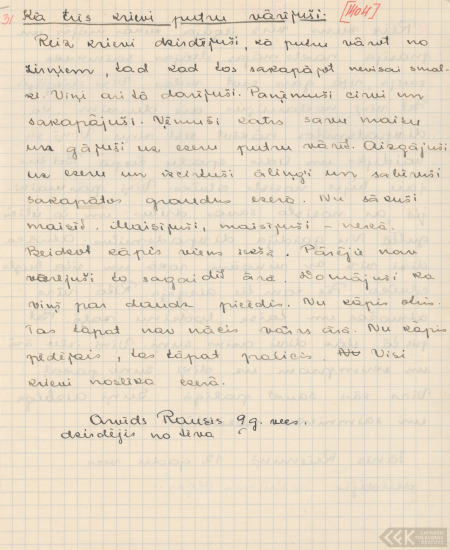 31 Kā trīs krievi putru vārījuši. [1404]
Reiz krievi dzirdējuši, kā putru vārot no
zirņiem, tad kad tos sakapājot nevisai smal-
ki. Viņi arī tā darījuši. Paņēmuši cirvi un
sakapājuši. Ņēmuši katrs savu maisu
un gājuši uz ezeru putru vārīt. Aizgājuši
uz ezeru un izcirtuši āliņģi un sabēruši
sakapātos graudus ezerā. Nu sākuši
maisīt. Maisījuši, maisījuši – nekā.
Beidzot kāpis viens iekšā. Pārējie nav
varējuši to sagaidīt ārā. Domājuši ka
viņš par daudz pieēdis. Nu kāpis otrs.
Tas tāpat nav nācis vairs ārā. Nu kāpis
pēdējais, tas tāpat palicis. Visi
krievi noslīka ezerā.
Arvīds Raugis 9 g. vecs.
dzirdējis no tēva
LATVIEŠU FOLKLORAS KRĀTUVE